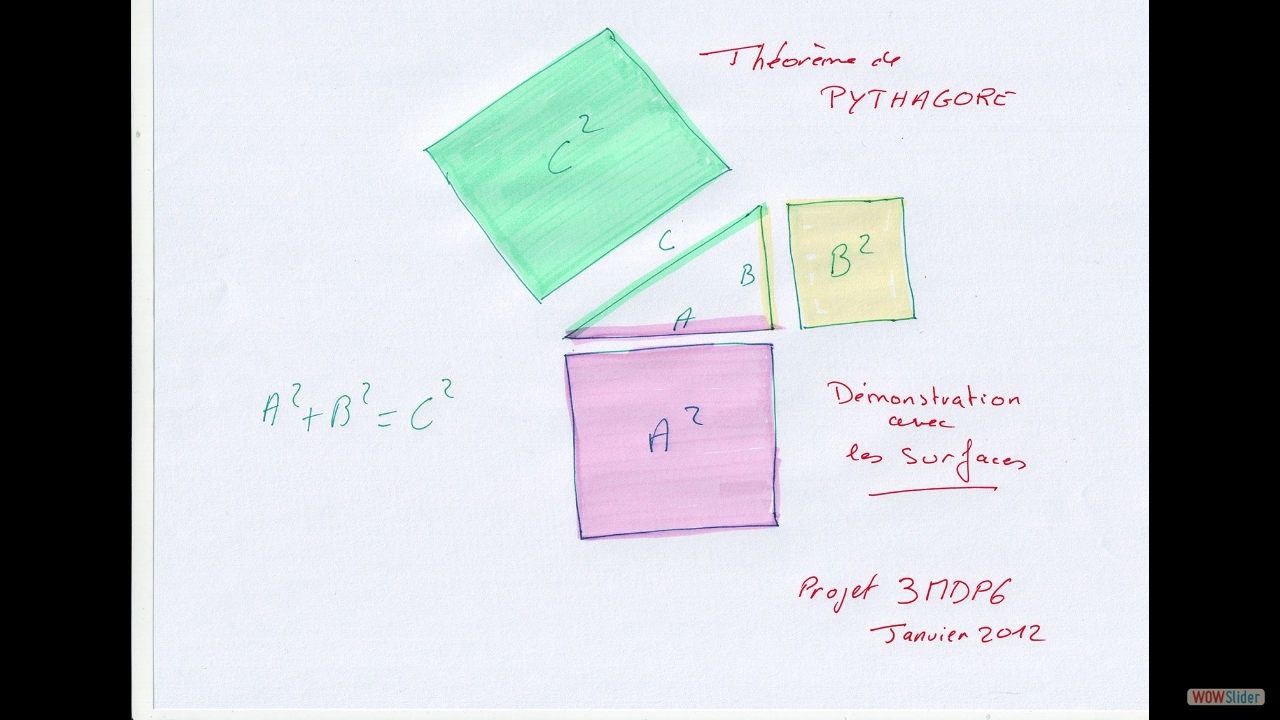 Théorème de
PYTHAGORE
C²
C
B
A
B²
A²
A²+B²=C²
Démonstration
avec
les surfaces
Projet 3MDP6
Janvier 2012
WOWSlider